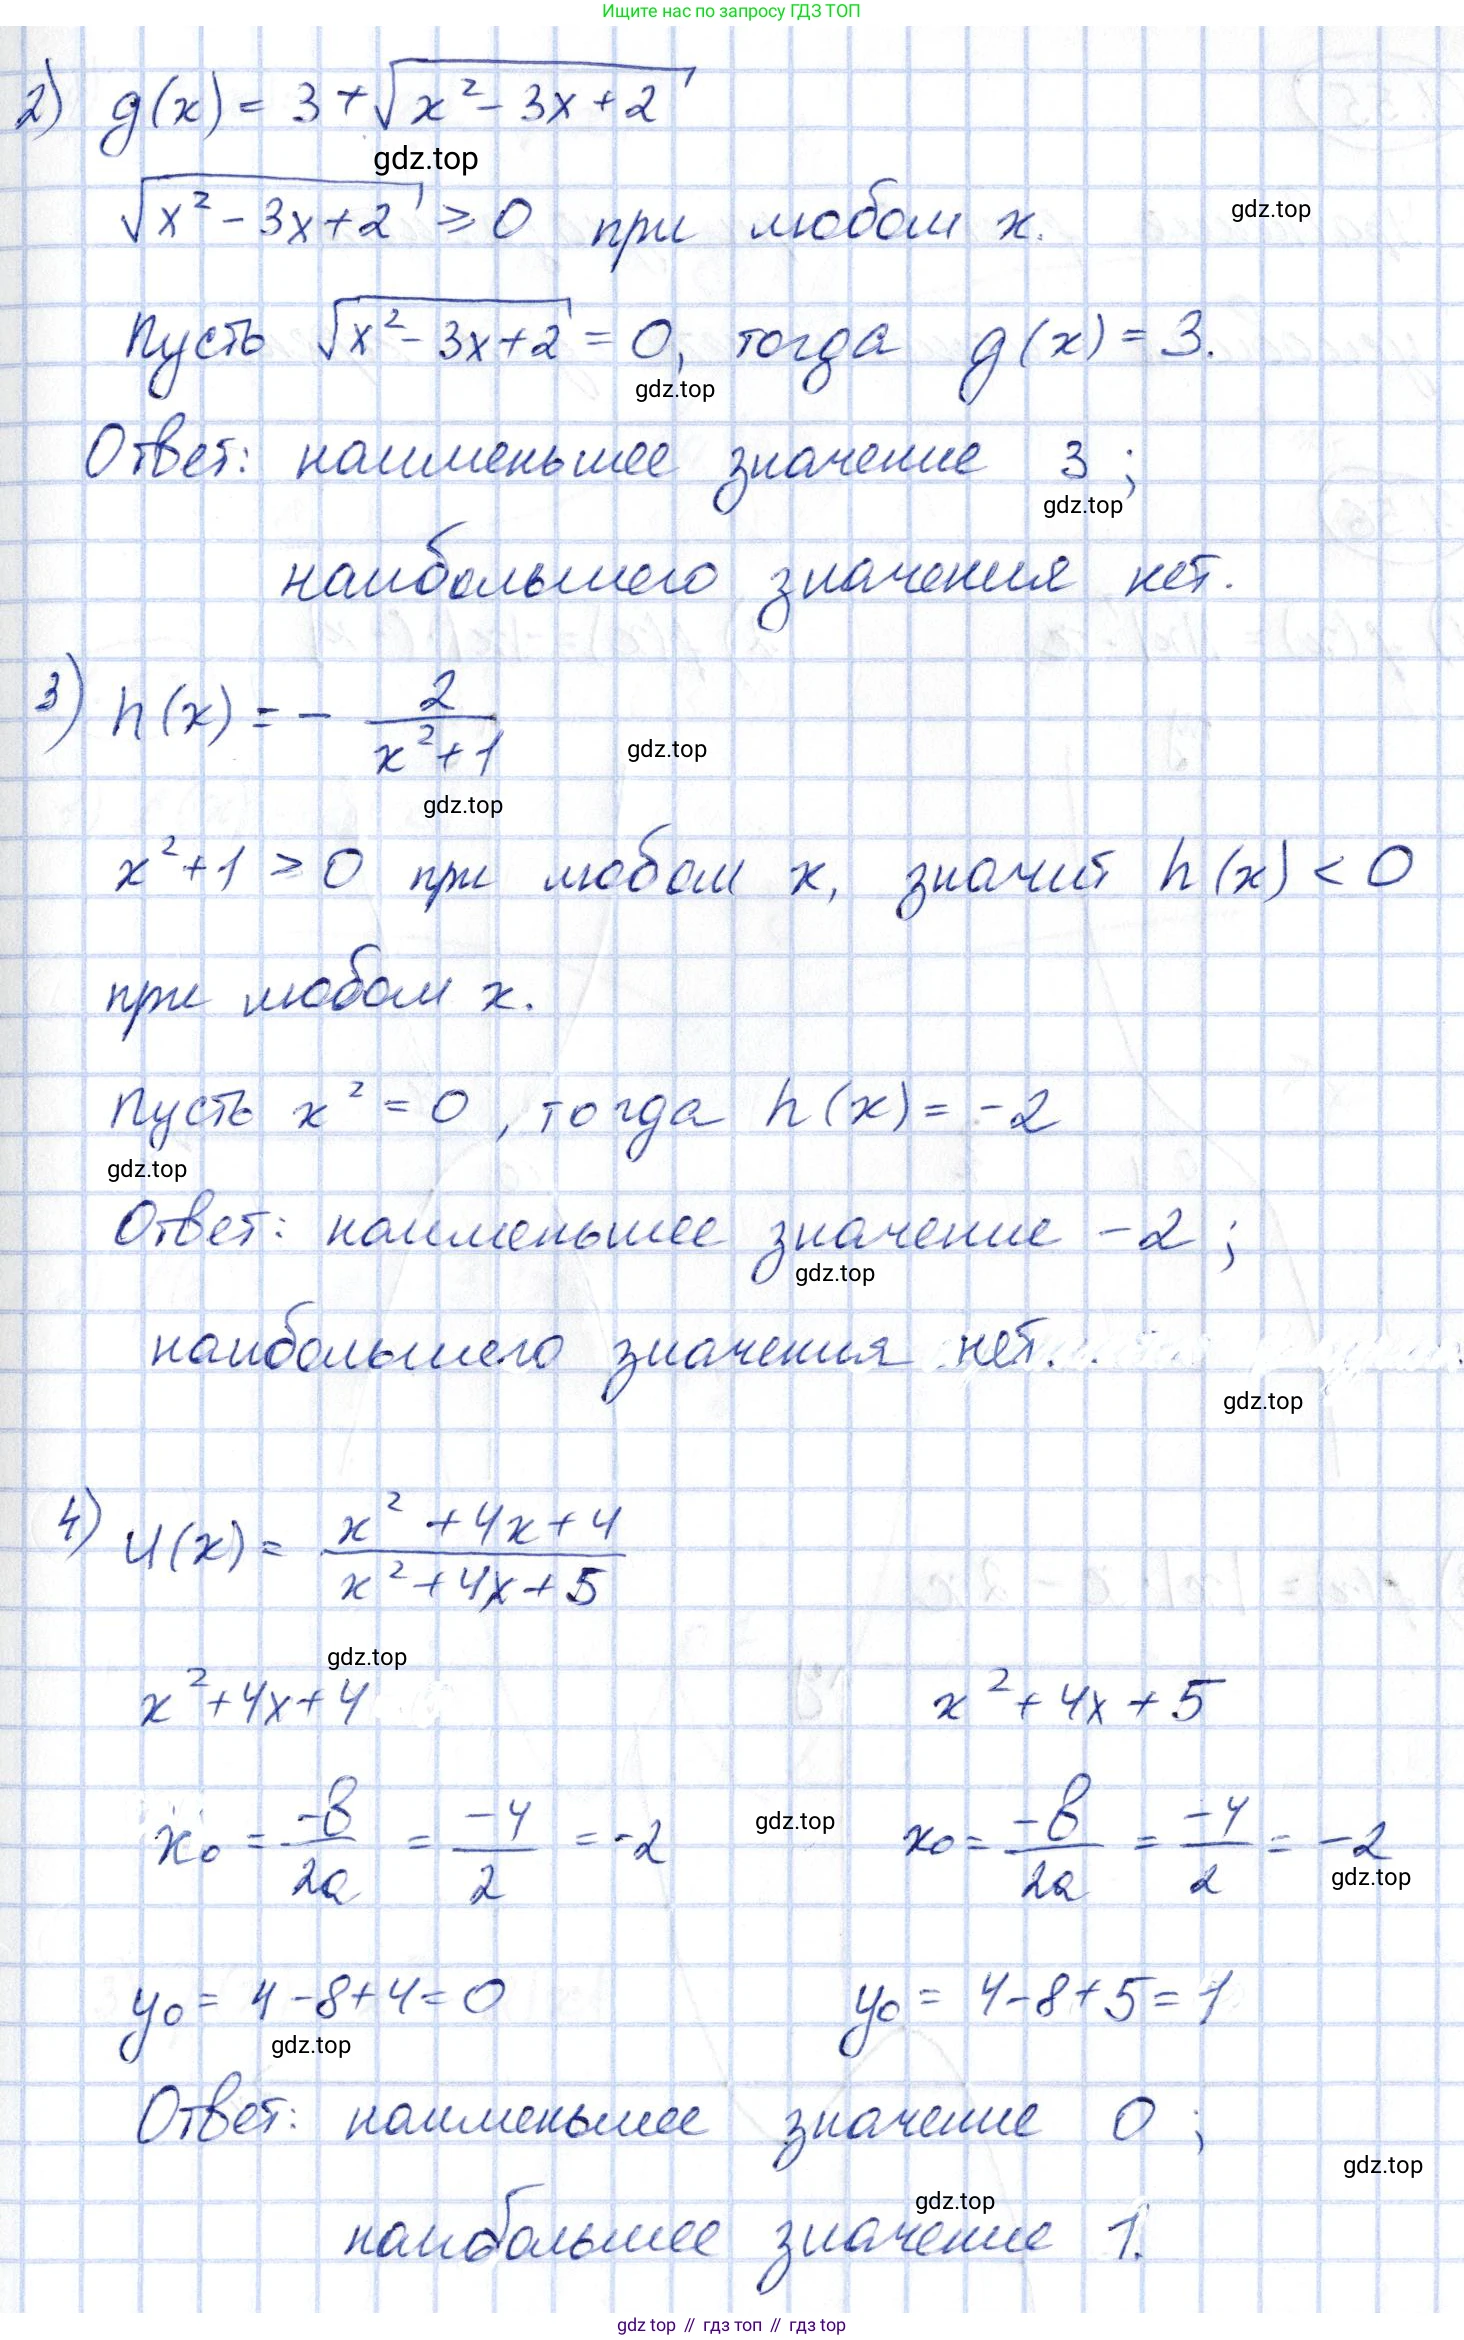 Ищите нас по запросу ГДЗ ТОП
2) g(x) = 3 + √(x² - 3x + 2)
gdz.top
√(x² - 3x + 2) ⩾ 0 при любом x.
gdz.top
Пусть √(x² - 3x + 2) = 0, тогда g(x) = 3.
gdz.top
Ответ: наименьшее значение 3;
gdz.top
наибольшего значения нет.
3) h(x) = - 2/(x² + 1)
gdz.top
gdz.top
x² + 1 ⩾ 0 при любом x, значит h(x) < 0
при любом x.
Пусть x² = 0, тогда h(x) = -2
gdz.top
Ответ: наименьшее значение -2;
gdz.top
наибольшего значения нет.
gdz.top
4) u(x) = (x² + 4x + 4)/(x² + 4x + 5)
gdz.top
x² + 4x + 4 x² + 4x + 5
x₀ = -в/2a = -4/2 = -2 gdz.top x₀ = -в/2a = -4/2 = -2
gdz.top
y₀ = 4 - 8 + 4 = 0 y₀ = 4 - 8 + 5 = 1
gdz.top
Ответ: наименьшее значение 0;
gdz.top
gdz.top
наибольшее значение 1.
gdz.top // гдз топ // гдз top